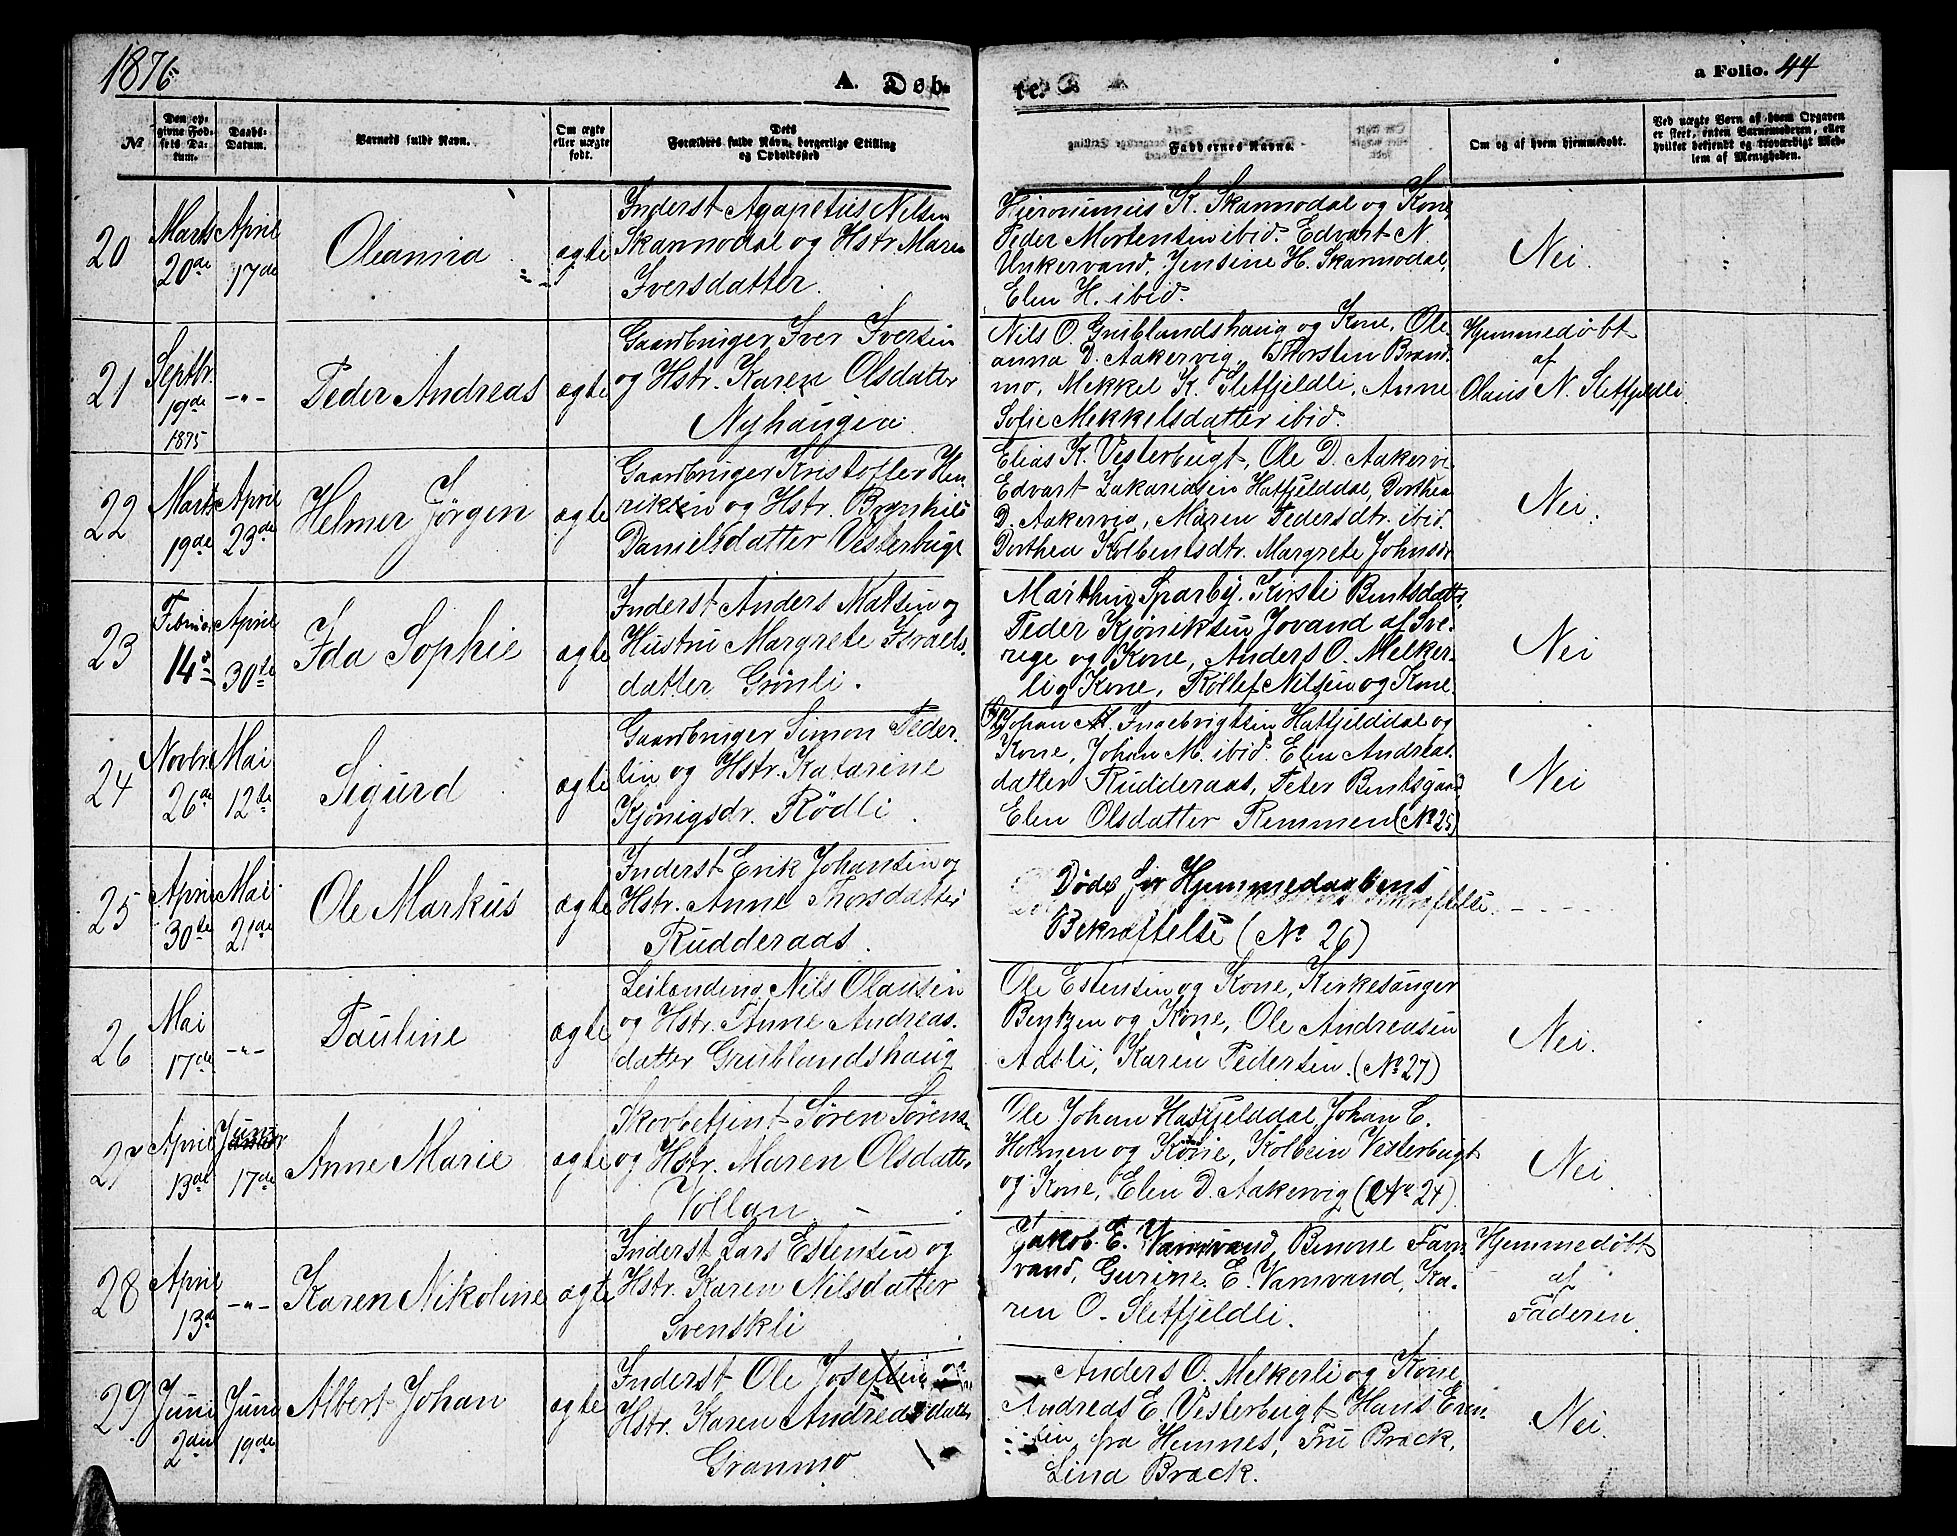 1876
A. Døb-
te.
a Folio. 44
№
Den op-
givne Fød-
sels Da-
tum.
Daabs-
Datum.
Barnets fulde Navn.
Om ægte
eller uægte
født.
Dets
Forældres fulde Navn, borgerlige Stilling
og Opholdssted
Faddernes Navne.
Om og af hvem hjemmedøbt.
Ved uægte Børn af hvem Opgaven
er skeet, enten Barnemoderen, eller
hvilket bekjendt og troværdigt Med-
lem af Menigheden.
20
Marts
20de
April
17de
Oleanna
ægte
Inderst Agapetus Nilsen
Skannodal og Hstr. Maren
Iversdatter.
Hieronimus K. Skannodal og Kone,
Peder Mortensen ibid. Edvart N.
Unkervand, Jensine H. Skannodal,
Elen H. ibid.
Nei.
21
Septbr.
19de
1875
-"-
Peder Andreas
ægte
Gaardbruger Iver Iversen
og Hstr. Karen Olsdatter
Nyhaugen.
Nils O. Grublandshaug og Kone, Ole-
anna D. Aakervig, Thorsten Brand-
mo, Mekkel K. Sletfjeldli, Anne
Sofie Mekkelsdatter ibid.
Hjemmedøbt
af
Olaus N. Sletfjeldli.
22
Marts
19de
April
23de
Helmer Jörgen
ægte
Gaardbruger Kristoffer Hen-
riksen og Hstr. Brynhild
Danielsdatter Vesterbugt
Elias K. Vesterbugt, Ole D. Aakervi-
Edvart Zakariasen Hatfjelddal, Dorthea
D. Aakervig, Maren Pedersdtr. ibid.
Dorthea Kolbensdtr. Margrete Johnsdr
Nei.
23
Februar
14de
April
30te
Ida Sophie
ægte
Inderst Anders Matsen og
Hustru Margrete Israels-
datter Grönli.
Marthin Sparby. Kirsti Bentsdatter,
Peder Kjöniksen Jovand af Sve-
rige og Kone, Anders O. Melker-
li og Kone, Rollef Nilsen og Kone.
Nei
24
Novbr.
26de
Mai
12te
Sigurd
ægte
Gaardbruger Simon Peder-
sen og Hstr. Katarine
Kjönigsdr. Rödli.
Johan A. Ingebrigtsen Hatfjelddal og
Kone, Johan M. ibid. Elen Andreas-
datter Rudderaas, Peter Bentsgaard
Elen Olsdatter Remmen (No 25)
Nei
25
April
30te
Mai
21de
Ole Markus
ægte
Inderst Erik Johansen og
Hstr. Anne Thorsdatter
Rudderaas.
Døde før Hjemmedaabens
Bekræftelse (No 26)
26
Mai
17de
-"-
Pauline
ægte
Leilending Nils Olausen
og Hstr. Anne Andreas-
datter Grublandshaug
Ole Estensen og Kone, Kirkesanger
Bentzen og Kone, Ole Andreasen
Aasli, Karen Pedersen. (No 27)
Nei.
27
April
13de
Juni
17de
Anne Marie
ægte
Skovbetjent Sören Sörensen
og Hstr. Maren Olsdatter
Vollan
Ole Johan Hatfjelddal, Johan C.
Holmen og Kone, Kolbein Vesterbugt
og Kone, Elen D. Aakervig (No 24)
Nei
28
April
13de
-"-
Karen Nikoline
ægte
Inderst Lars Estensen og
Hstr. Karen Nilsdatter
Svenskli
Jakob E. Varnvand, Benone Favn-
vand, Gurine E. Varnvand, Ka-
ren O. Sletfjeldli.
Hjemmedøbt
af
Faderen.
29
Juni
2den
Juni
19de
Albert Johan
ægte
Inderst Ole Josefsen og
Hstr. Karen Andreasdatter
Granmo
Anders O. Melkerli og Kone,
Andreas E. Vesterbugt Hans Even-
sen fra Hemnes, Fru Brack,
Lina Brack.
Nei.